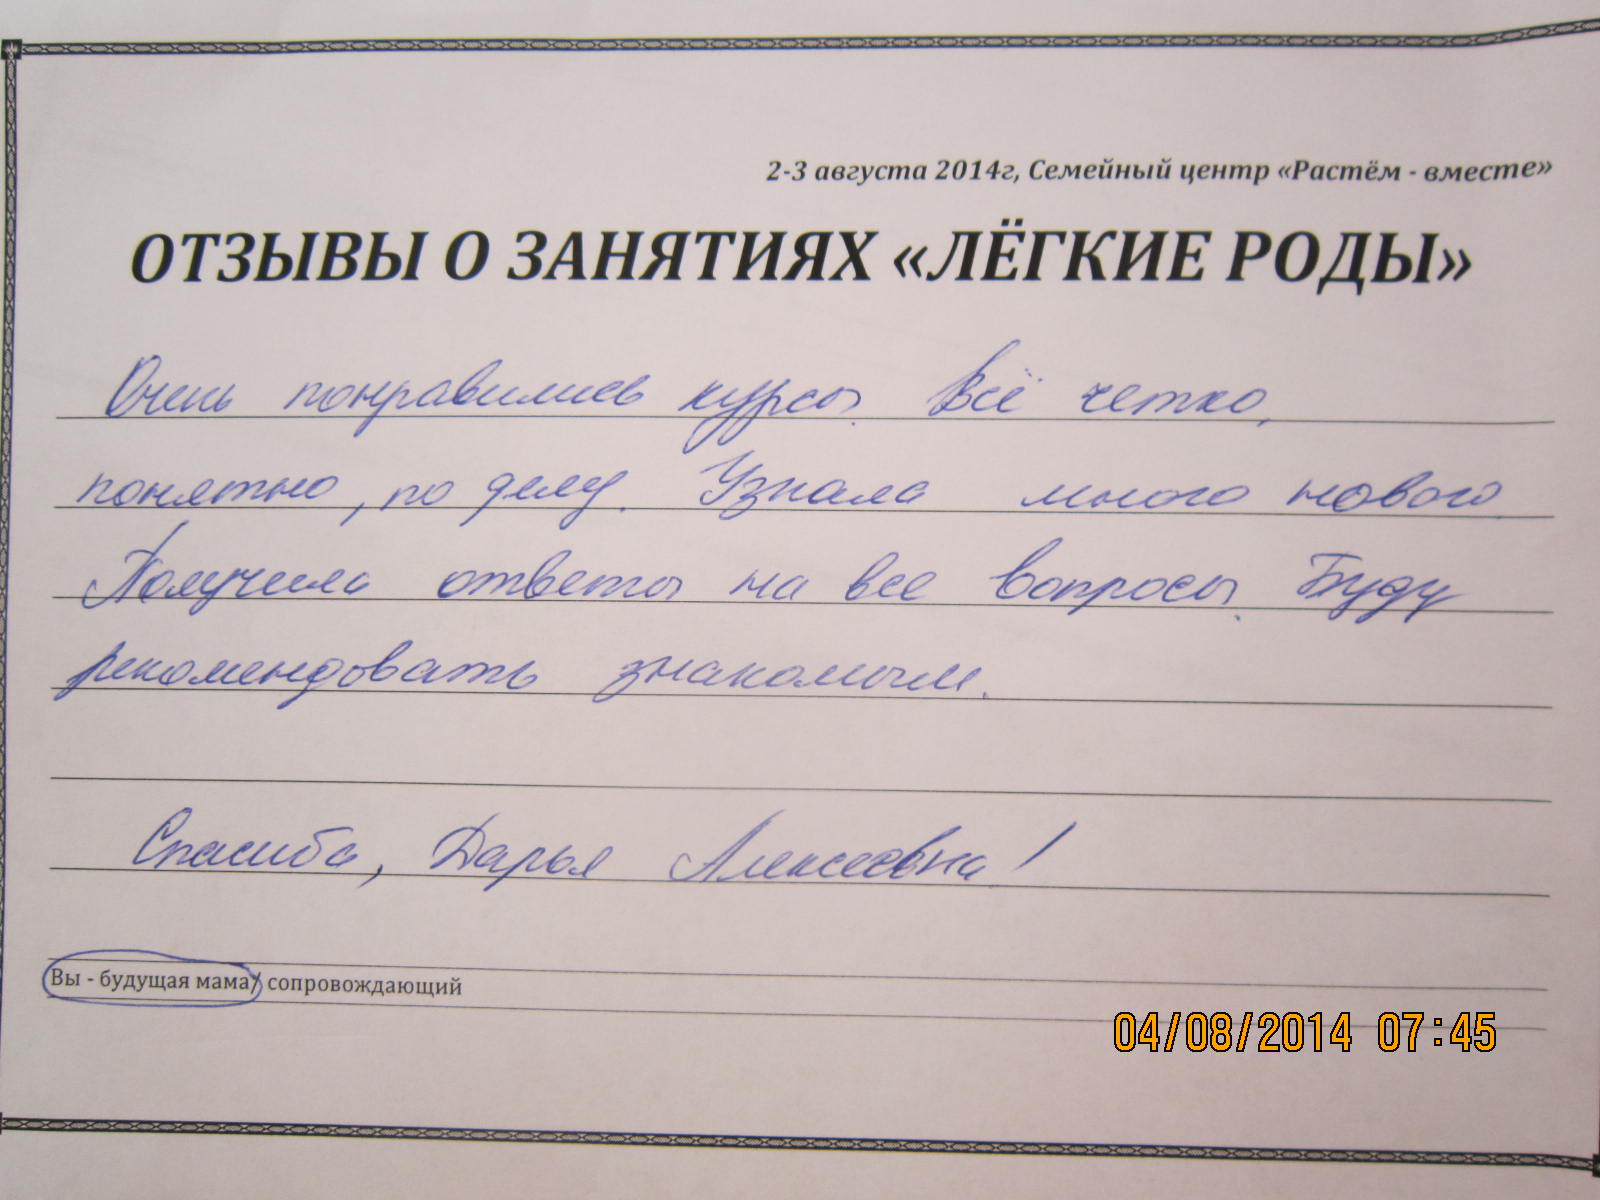 2-3 августа 2014г, Семейный центр «Растём - вместе»
ОТЗЫВЫ О ЗАНЯТИЯХ «ЛЁГКИЕ РОДЫ»
Очень понравились курсы. Всё четко,
понятно, по делу. Узнала много нового.
Получила ответы на все вопросы. Буду
рекомендовать знакомым.
Спасибо, Дарья Алексеевна!
Вы - будущая мама/ сопровождающий
04/08/2014 07:45